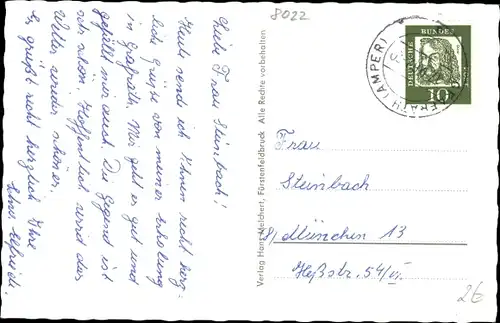 Liebe Frau Steinbach!
Heute send ich Ihnen recht herz-
liche Grüße von meiner Erholung
in Grafrath. Mir geht es gut und
gefällt mir auch. Die Gegend ist
sehr schön. Hoffentlich wird das
Wetter wieder schöner.
Es grüßt recht herzlich Ihre
Elfriede.
Verlag Hans Melchert, Fürstenfeldbruck Alle Rechte vorbehalten
8022
RATH (AMPER)
DEUTSCHE
BUNDES
10
Frau
Steinbach
8 München 13
Heßstr. 54/VI.
2€